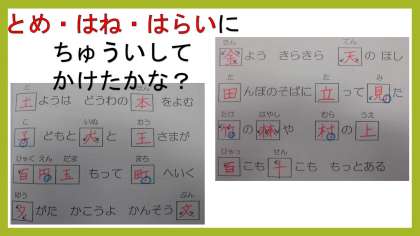 とめ・はね・はらいに
ちゅういして
かけたかな？
ど
土ようは どうわの 本 をよむ
こ いぬ おう
子 どもと 犬 と 王 さまが
ひゃく えん だま まち
百 円 玉 もって 町 へいく
ゆう ぶん
夕 がた かこうよ かんそう 文
きん てん
金 よう きらきら 天 の ほし
た た み
田 んぼのそばに 立 って 見 た
たけ はやし むら うえ
竹 の 林 や 村 の 上
ひゃっ せん
百 こも 千 こも もっとある